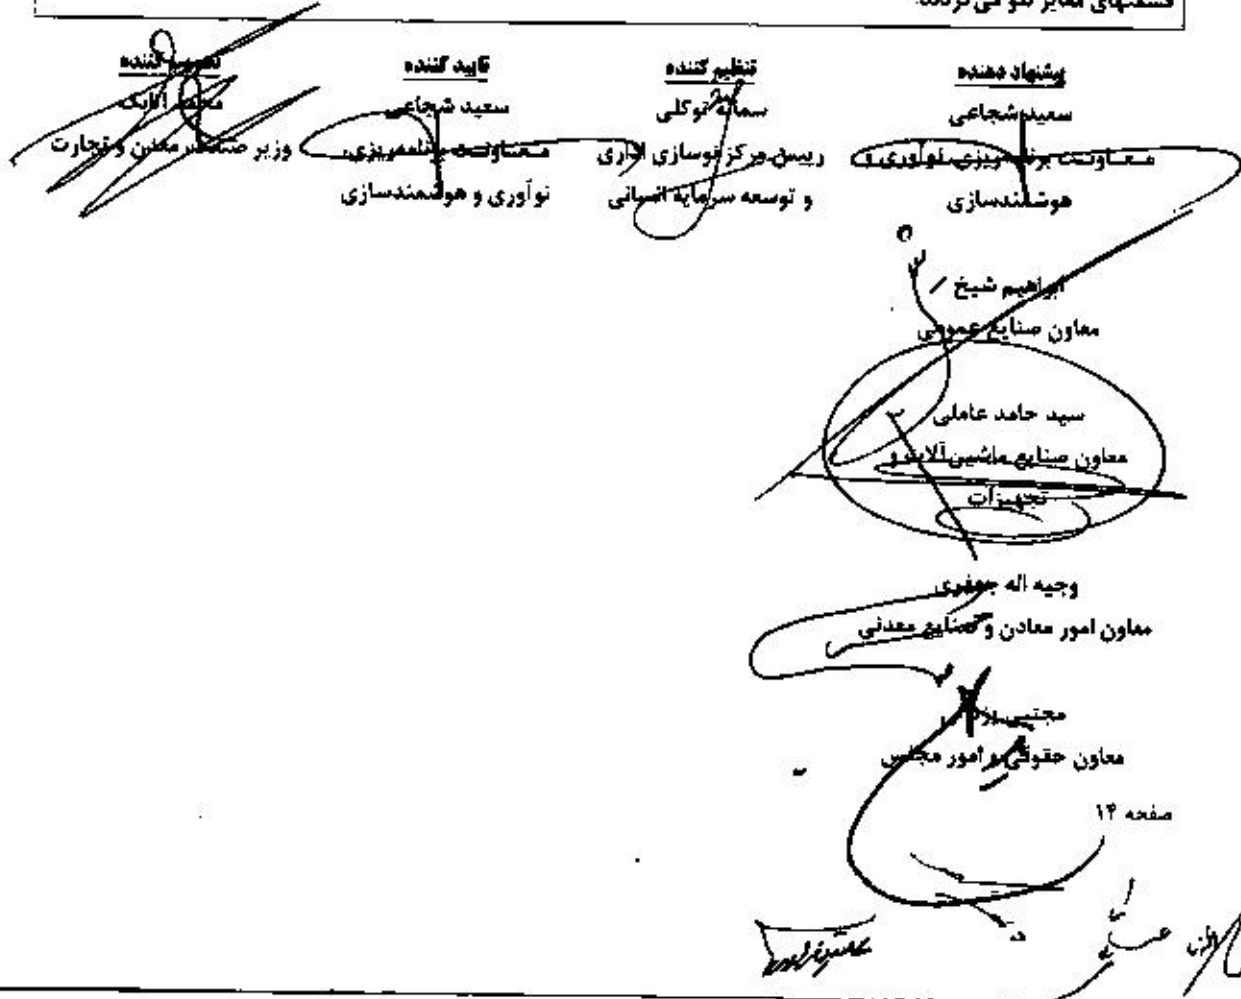 قسمتهای مغایر لغو می گردند.
پیشنهاد دهنده
سعید شجاعی
معاونت برنامه‌ریزی، نوآوری و
هوشمندسازی
ابراهیم شیخ
معاون صنایع عمومی
سید حامد عاملی
معاون صنایع ماشین آلات و
تجهیزات
وجیه اله جعفری
معاون امور معادن و صنایع معدنی
مجتبی
معاون حقوقی و امور مجلس
تنظیم کننده
سمانه توکلی
رییس مرکز نوسازی اداری
و توسعه سرمایه انسانی
تایید کننده
سعید شجاعی
معاونت برنامه‌ریزی،
نوآوری و هوشمندسازی
تصویب کننده
محمد اتابک
وزیر صنعت، معدن و تجارت
صفحه ۱۴